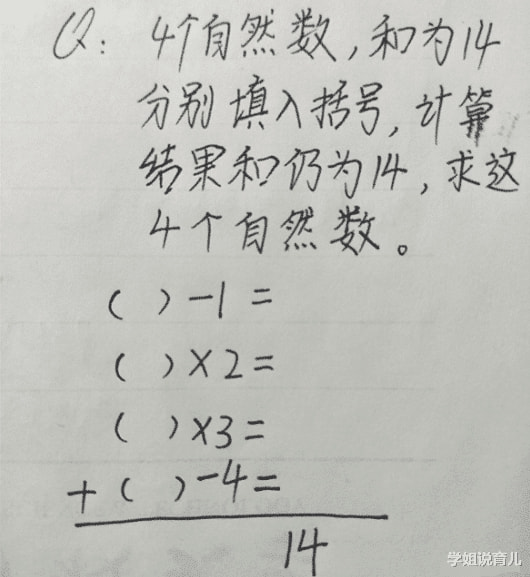 Q: 4个自然数,和为14
分别填入括号,计算
结果和仍为14,求这
4个自然数。
( )-1=
( )×2=
( )×3=
+( )-4=
14
学姐说育儿